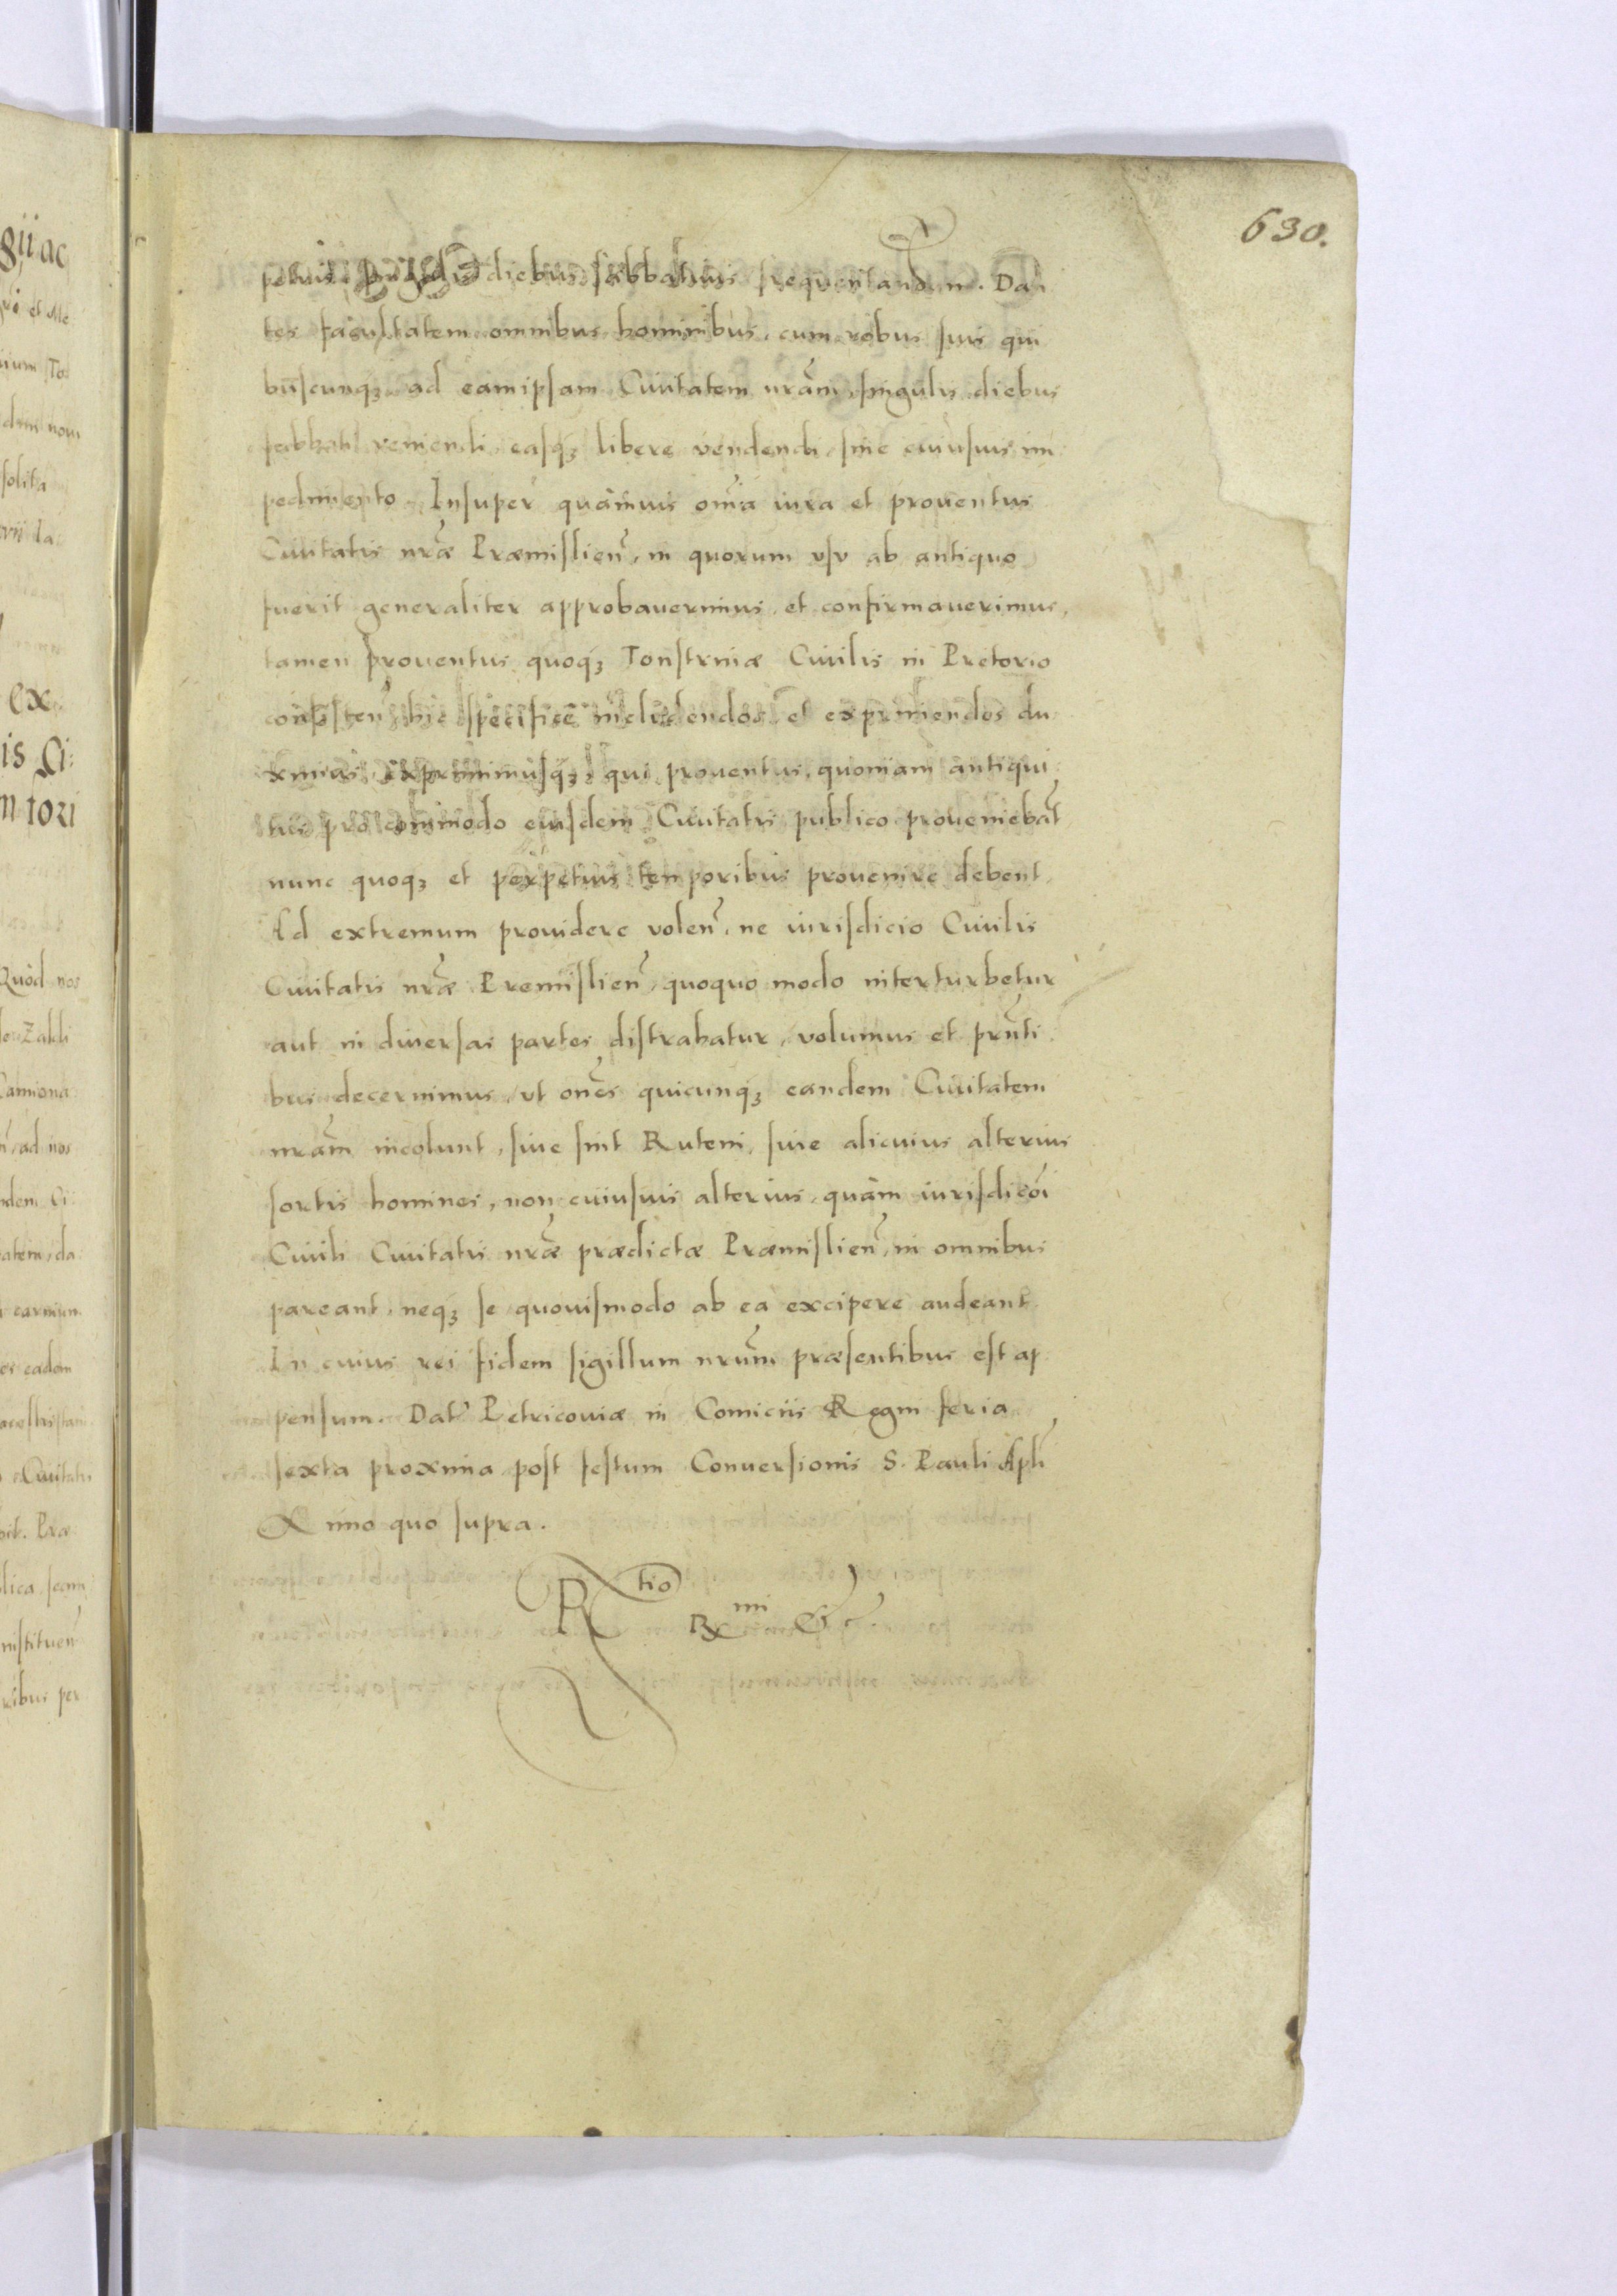 630.
petuis singulis diebus sabbathivis frequentandum. Dan
tes facultatem omnibus hominibus, cum rebus suis qui
buscunqȝ ad eam ipsam Civitatem nrãm, singulis diebus
sabbati veniendi, easqȝ libere vendendi, sine cuiusuis im
pedimento. Insuper quàmuis omĩa iura et prouentus
Civitatis nrãe Præmislieñ, in quorum vsv ab antiquo
fuerit generaliter approbauerimus, et confirmauerimus,
tamen prouentus quoqȝ Tonstrinæ Ciuilis in Pretorio
consisteñ, hic specifice includendos et exprimendos du
ximus, exprimimusqȝ, qui prouentus, quoniam antiqui
tus pro commodo eiusdem Ciuitatis publico proueniebãt
nunc quoqȝ et perpetuis temporibus prouenire debent.
Ad extremum prouidere voleñ, ne iurisdicio Ciuilis
Ciuitatis nrãe Premislieñ, quoquo modo interturbetur
aut in diuersas partes distrahatur, volumus et prñti
bus decernimus, vt omẽs quicunqȝ eandem Ciuitatem
nrãm incolunt, siue sint Ruteni, siue alicuius alterius
sortis homines, non cuiusuis alterius, quàm iurisdicõi
Ciuili Ciuitatis nrãe prædictæ Præmislieñ, in omnibus
pareant, neqȝ se quouismodo ab ea excipere audeant.
In cuius rei fidem sigillum nrũm præsentibus est ap
pensum. Dat̃ Petricouiæ in Comiciis Regni feria
sexta proxima post festum Conuersionis S. Pauli Apli
Anno quo supra.
Rtio Rmi &c.